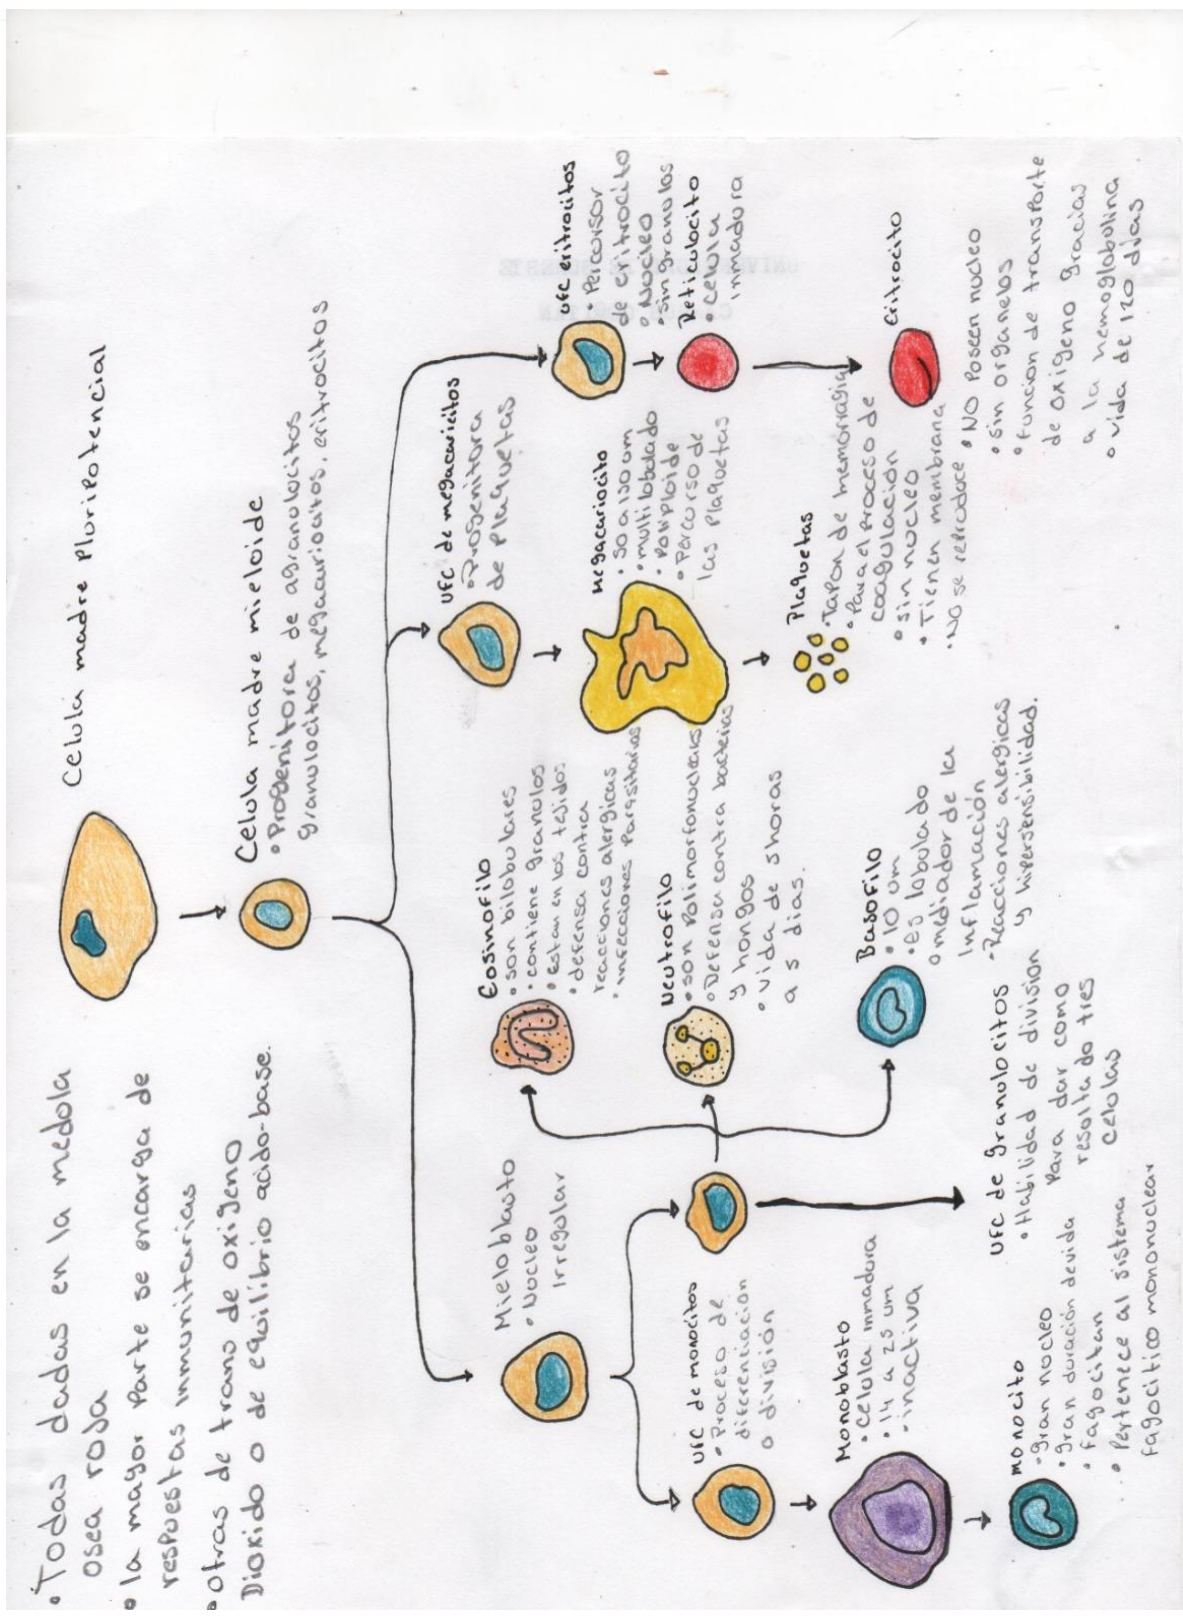 • Todas dadas en la medola
osea roja
• la mayor parte se encarga de
respuestas inmunitarias
• Otras de trans de oxigeno
Dioxido o de equilibrio acido-base.
Celula madre Pluripotencial
Celula madre mieloide
• Progenitora de agranulocitos
granulocitos, megacuriocitos, eritrocitos
Mieloblasto
• Nucleo
Irregular
UFC de monocitos
• Proceso de
diferenciacion
o división
Monoblasto
• Celula inmadura
• 14 a 25 um
• inactiva
monocito
- gran nucleo
• gran duración devida
• fagocitan
• Pertenece al sistema
fagocitico mononuclear
UFC de granulocitos
• Habilidad de division
Para dar como
resoltado tres
celulas
Eosinofilo
• son bilobulares
• contiene granulos
• Estan en los tejidos
• defensa contra
reacciones alergicas
• infecciones Parasitarias
Neutrofilo
• son Polimorfonucleais
• Defensa contra bacterias
y hongos
• vida de 5horas
a 5 dias.
Basofilo
• 10 um
• Es lobulado
o mediador de la
Inflamación
- Reacciones alergicas
y hipersensibilidad.
UFC de megacaricitos
• Progenitora
de plaquetas
Megacariocito
• 50 a 150 um
• multilobulado
• Poliploide
• Percurso de
las Plaquetas
Plaquetas
• Tapon de memorragia
• Para el Proceso de
coagulación
• sin nucleo
• Tienen membrana
• No se reproduce
UFC eritrocitos
• Percursor
de eritrocito
• Nucleo
• sin granulos
Reticulocito
• celula
inmadura
Eritrocito
• No Poseen nucleo
• sin organelos
• funcion de transporte
de oxigeno gracias
a la hemoglobulina
o vida de 120 dias